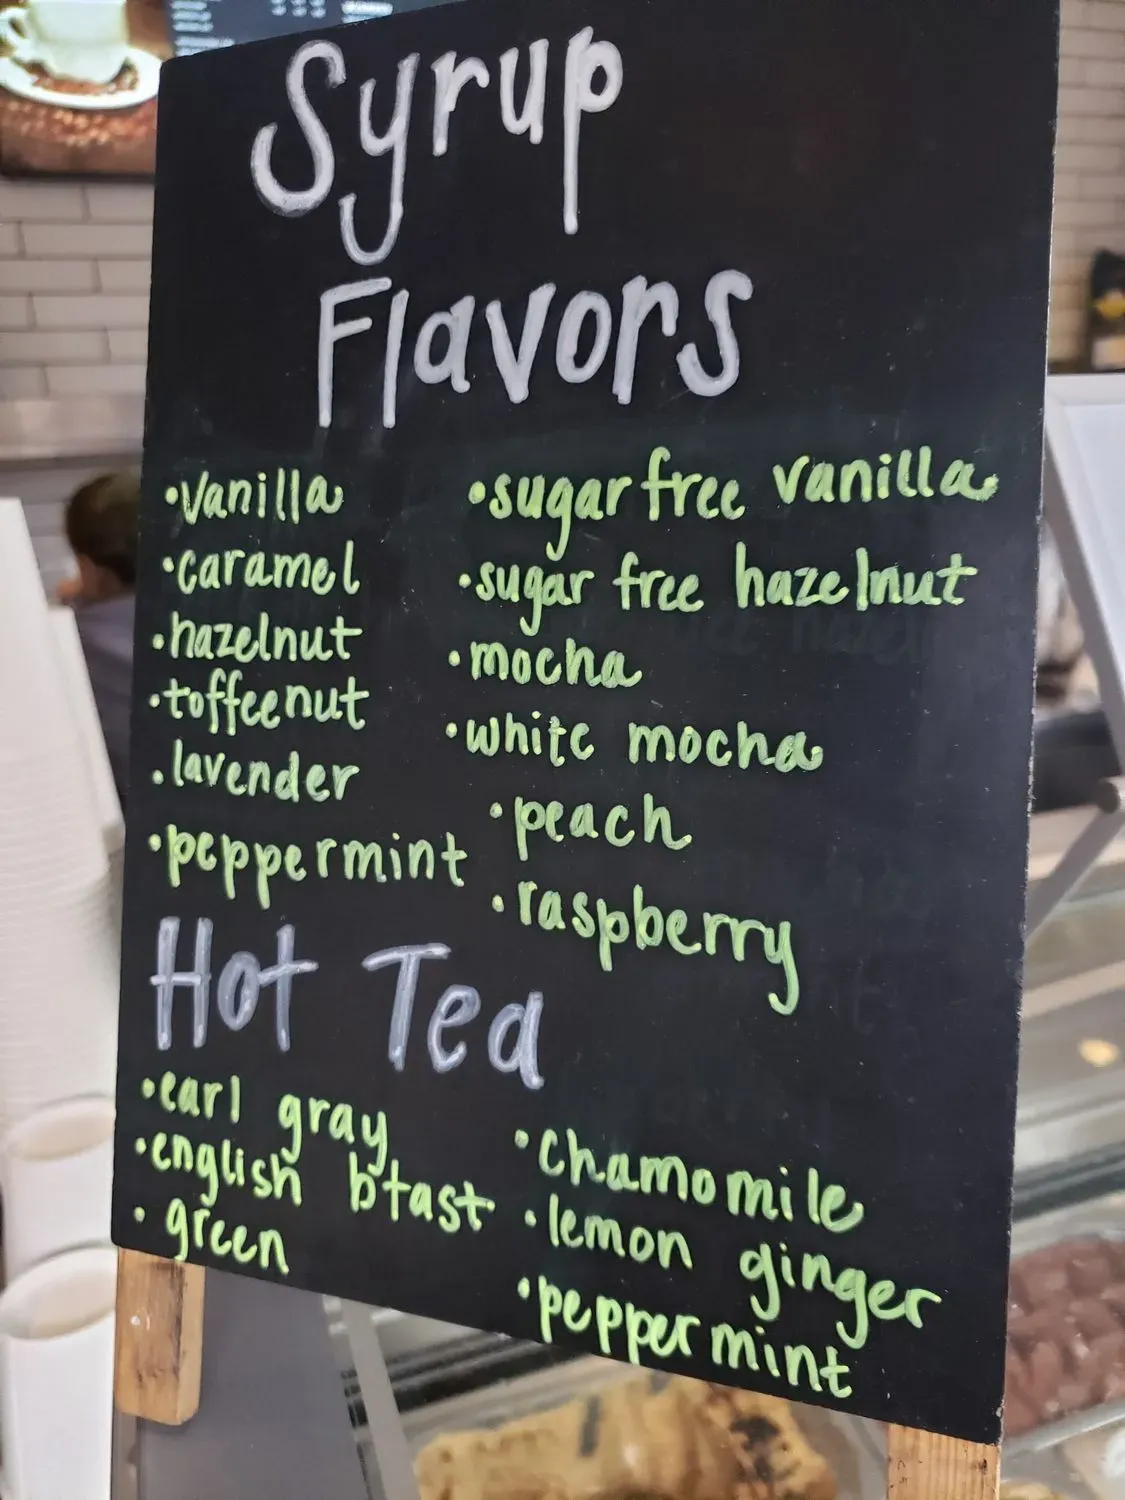 Syrup
Flavors
•vanilla
•caramel
•hazelnut
•toffeenut
•lavender
•peppermint
•sugar free vanilla
•sugar free hazelnut
•mocha
•white mocha
•peach
•raspberry
Hot Tea
•earl gray
•english bfast
•green
•chamomile
•lemon ginger
•peppermint